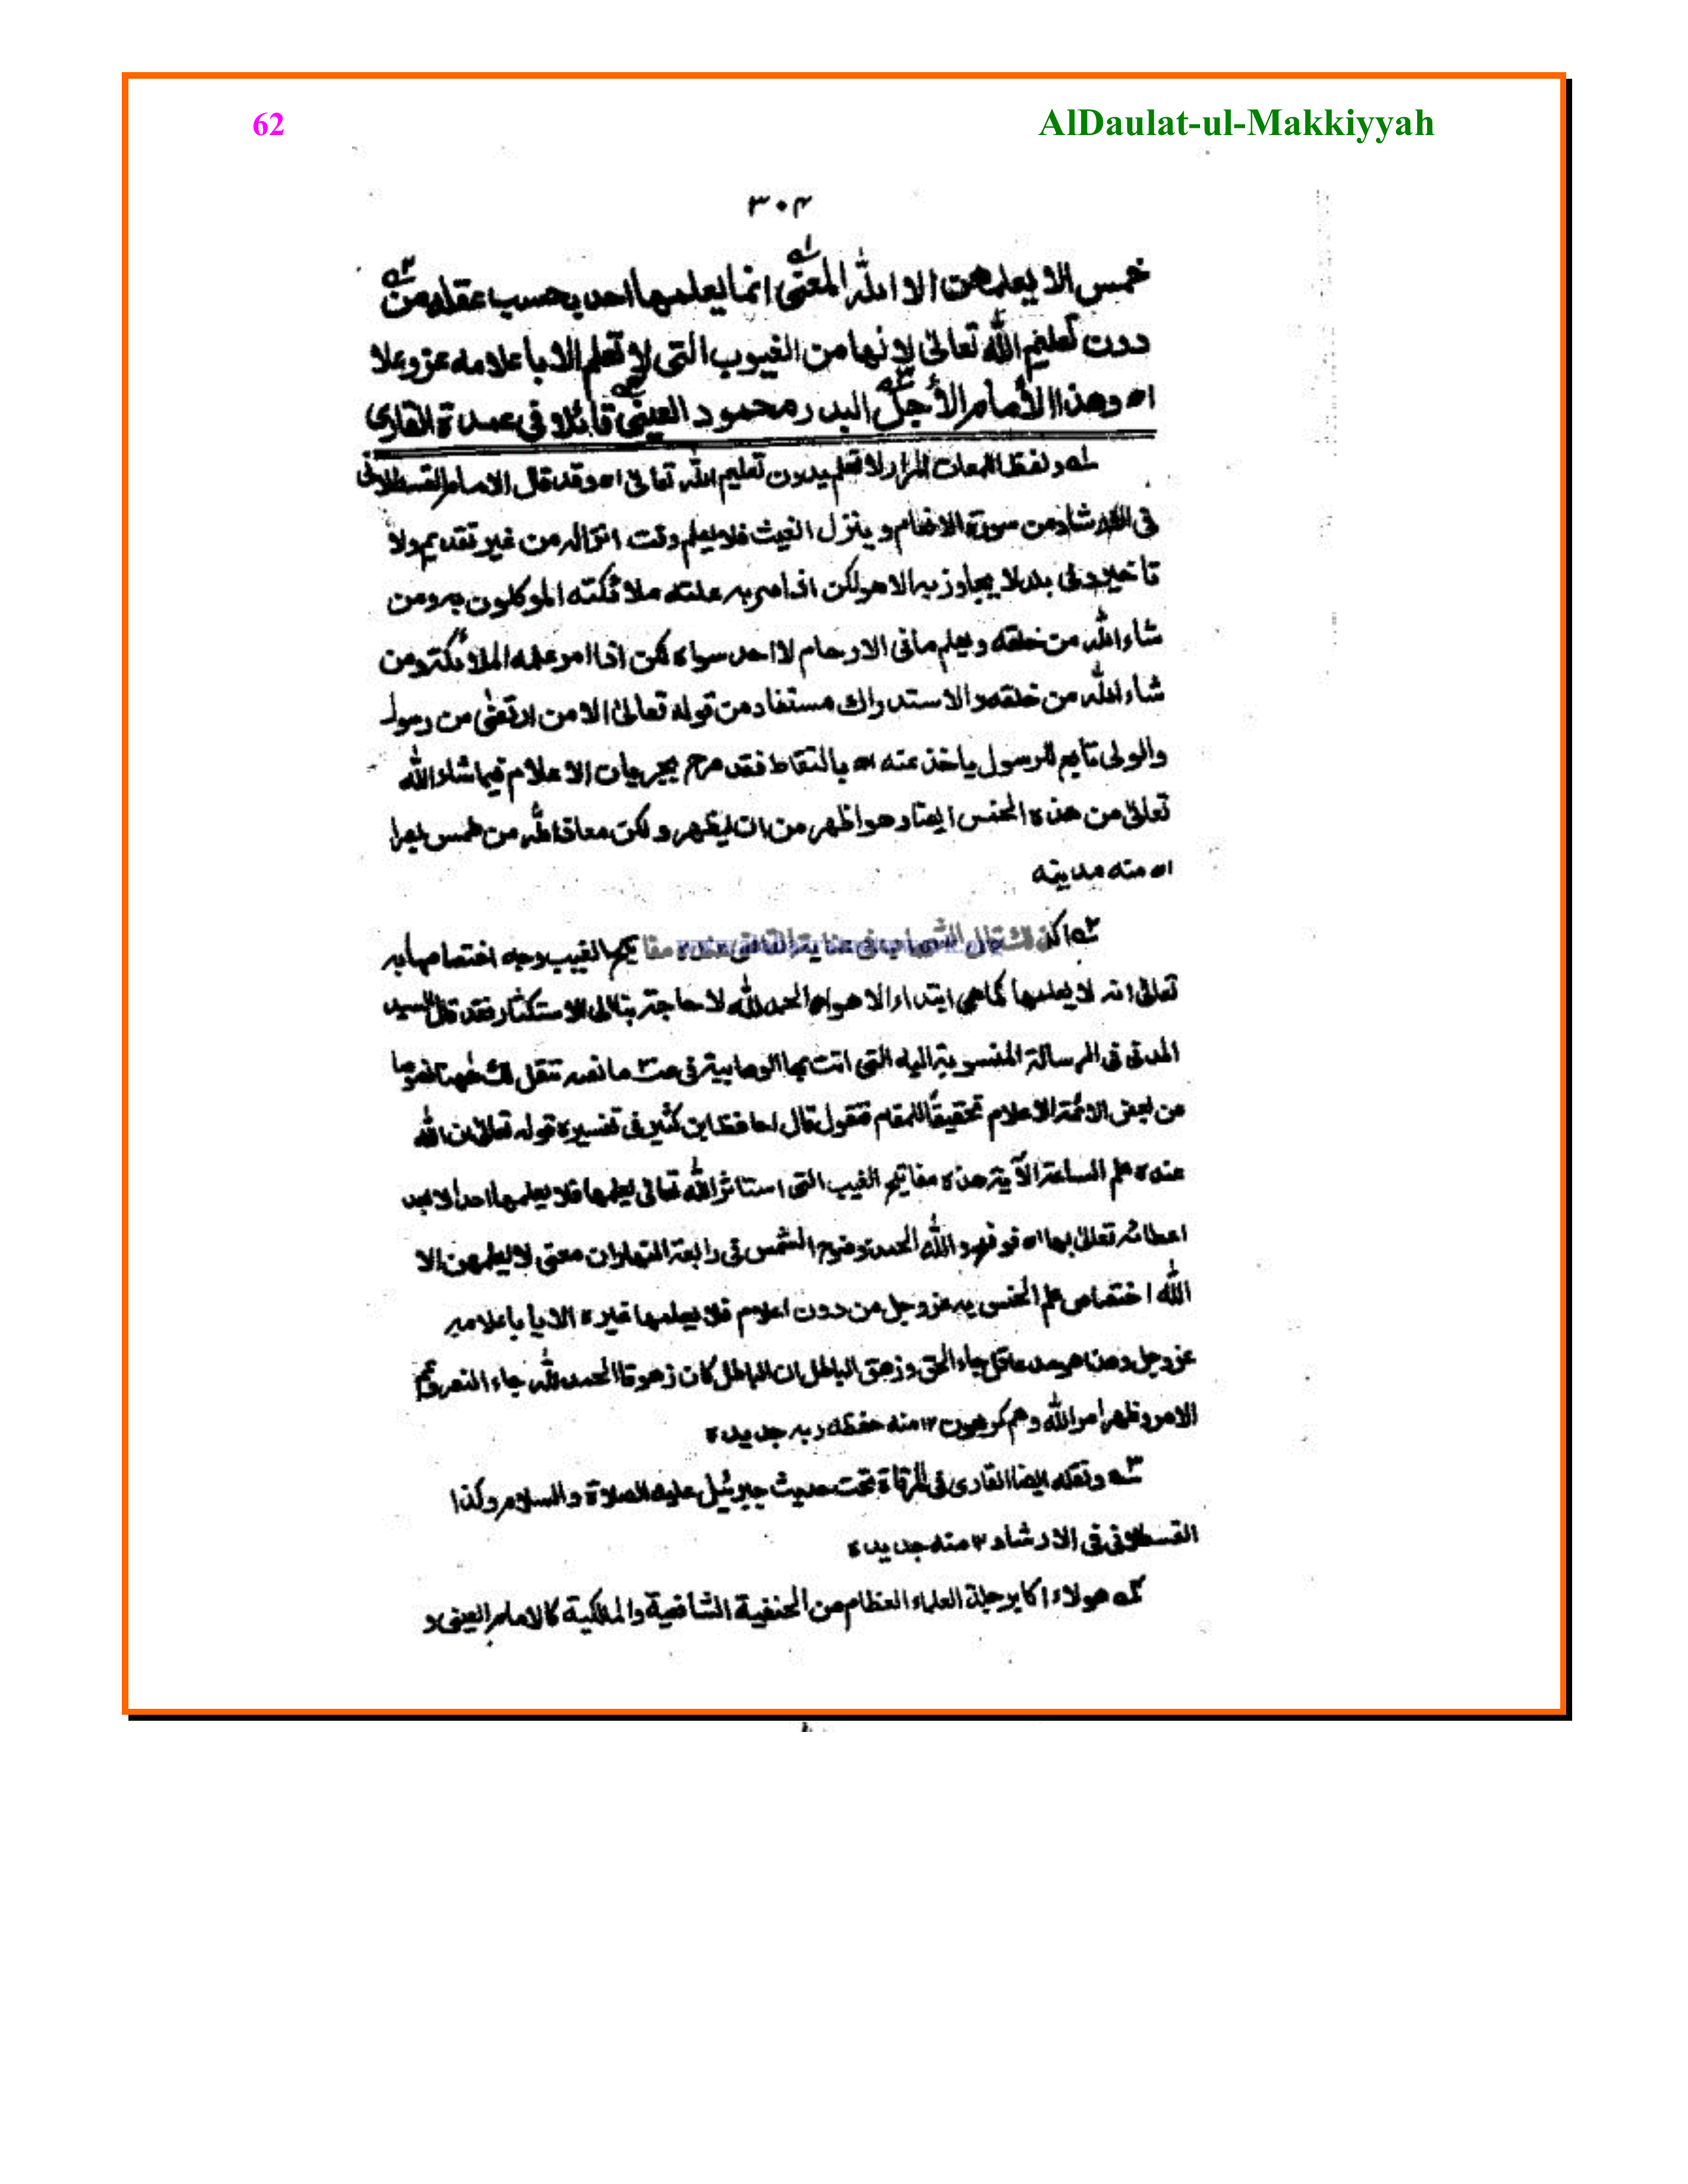 62 AlDaulat-ul-Makkiyyah
۳۰۴
خمس لا يعلمهن الا الله المعنى انما يعلمها احد بحسب عقله من
دون تعليم الله تعالى لانها من الغيوب التى لا تعلم الا باعلامه عز وعلا
اه وهذا الامام الأجل البدر محمود العينى قائلا فى عمدة القارى
له ولفظ اللمعات المراد لا تعلم بدون تعليم الله تعالى اه وقد قال الامام القسطلانى
فى الارشاد من سورة الانعام وينزل الغيث فلا يعلم وقت انزاله من غير تقديم ولا
تاخير وفى بلد لا يجاوز به الا هو لكن اذا امر به علمته ملائكته الموكلون به ومن
شاء الله من خلقه ويعلم مافى الارحام لا احد سواه لكن اذا امر علمه الملائكة ومن
شاء الله من خلقه والاستدراك مستفاد من قوله تعالى الا من ارتضى من رسول
والولى تابع للرسول ياخذ عنه اه بالتقاط فقد صرح بجريان الاعلام فيما شاء الله
تعالى من هذه الخمس ايضا وهو اظهر من ان يظهر ولكن معاذ الله من طمس
اه منه مدينه
الشهاب فى عناية القاضى مفاتيح الغيب وجه اختصاصها به
تعالى انه لا يعلمها كماهى ابتداء الا هو اه الحمد لله لا حاجة بنا الى الاستكثار فقد قال السيد
المدنى فى الرسالة المنسوبة اليه التى اتت بها الوهابية فى ما نصه ننقل لك ههنا نصوصا
من بعض الائمة الاعلام تحقيقًا للمقام فنقول قال الحافظ ابن كثير فى تفسيره قوله تعالى ان الله
عنده علم الساعة الآية هذه مفاتيح الغيب التى استاثر الله تعالى بعلمها فلا يعلمها احد الا بعد
اعطائه تعالى بها اه فوضح ولله الحمد وضوح الشمس فى رابعة النهار ان معنى لا يعلمهن الا
الله اختصاص علم الخمس به عز وجل من دون اعلام فلا يعلمها غيره الا باعلامه
عز وجل جاء الحق وزهق الباطل ان الباطل كان زهوقا الحمد لله جاء النصر وتم
الامر وظهر امر الله وهم كرهون ۱۲ منه حفظه ربه جديده
۳ه ونقله ايضا القارى فى المرقاة تحت حديث جبرئيل عليه الصلاة والسلام وكذا
القسطلانى فى الارشاد ۱۲ منه جديده
۴ه هولاء اكابر جلة العلماء العظام من الحنفية الشافعية والمالكية كالامام العينى و